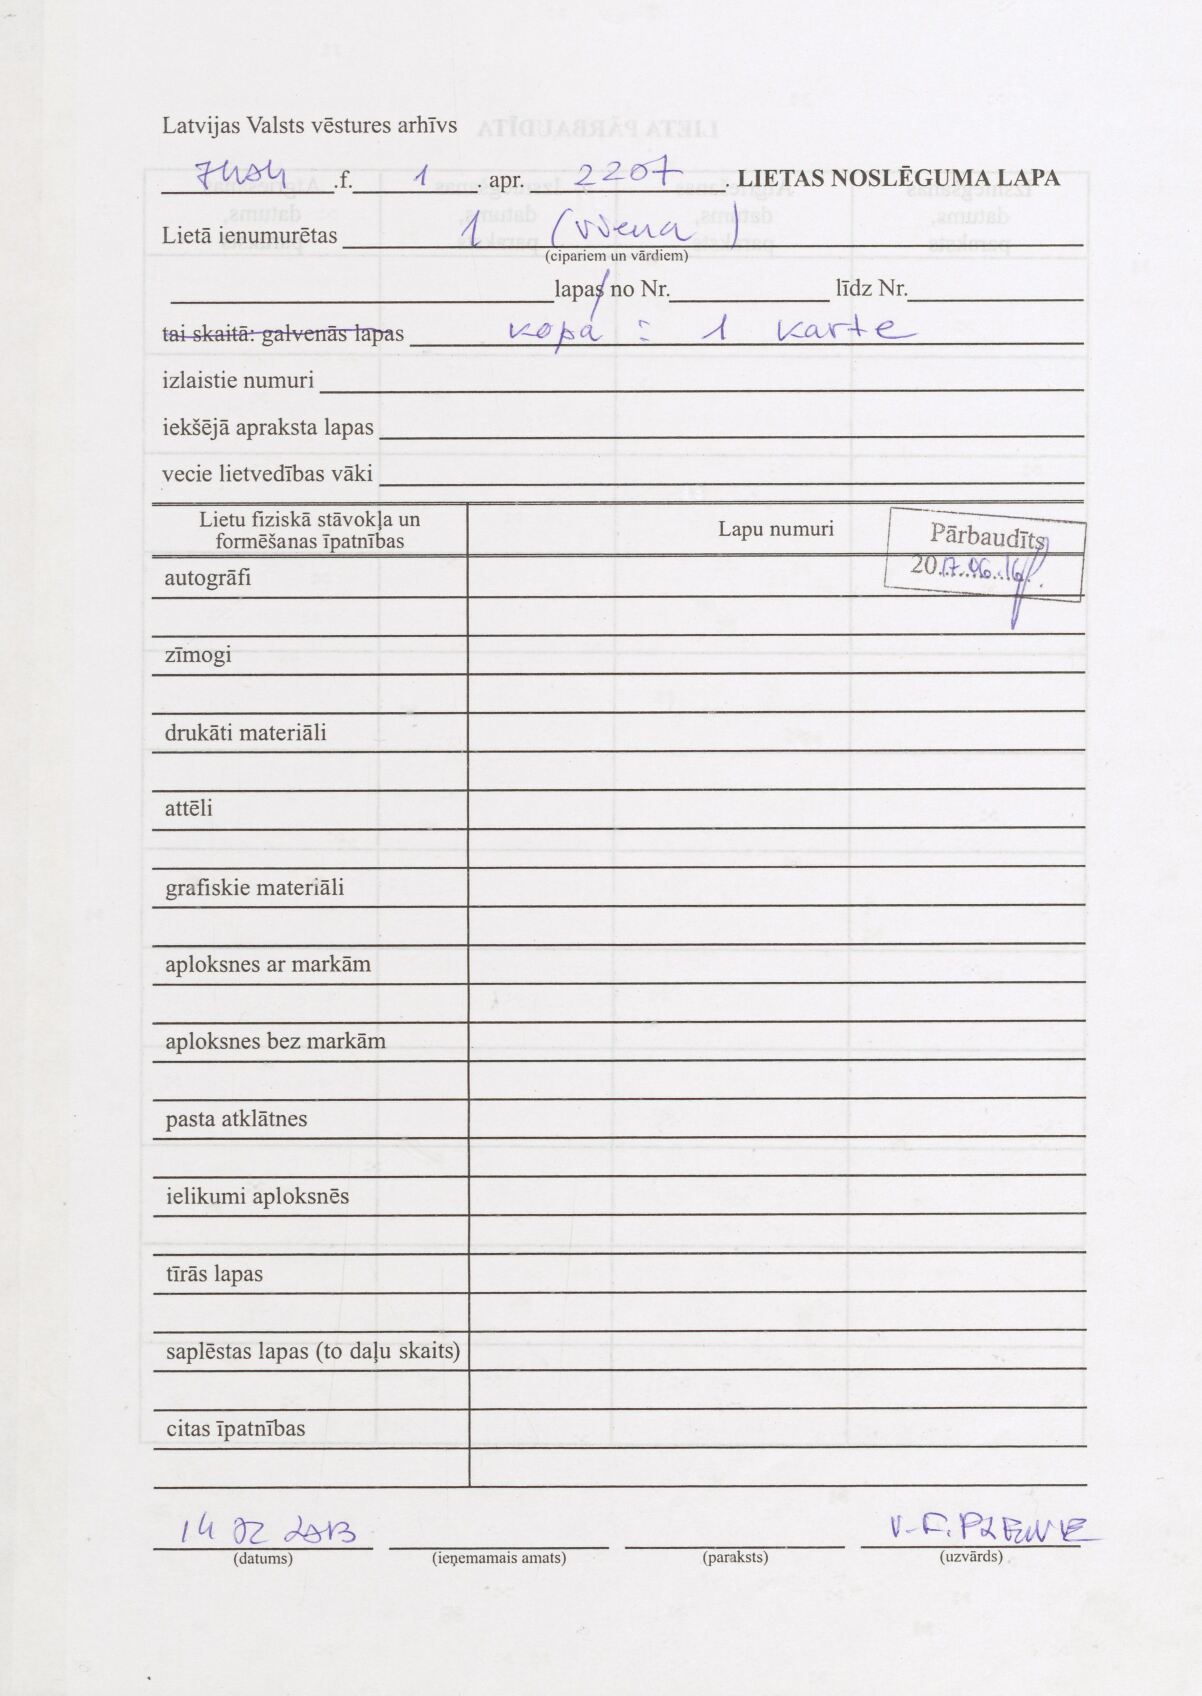 Latvijas Valsts vēstures arhīvs
7404 .f. 1 . apr. 2207 . LIETAS NOSLĒGUMA LAPA
Lietā ienumurētas 1 (viena)
(cipariem un vārdiem)
lapas no Nr. līdz Nr.
tai skaitā: galvenās lapas kopā: 1 karte
izlaistie numuri
iekšējā apraksta lapas
vecie lietvedības vāki
Lietu fiziskā stāvokļa un formēšanas īpatnības
Lapu numuri
Pārbaudīts
2017.06.16.
autogrāfi
zīmogi
drukāti materiāli
attēli
grafiskie materiāli
aploksnes ar markām
aploksnes bez markām
pasta atklātnes
ielikumi aploksnēs
tīrās lapas
saplēstas lapas (to daļu skaits)
citas īpatnības
14 02 2013 V-F. PLEWE
(datums) (ieņemamais amats) (paraksts) (uzvārds)